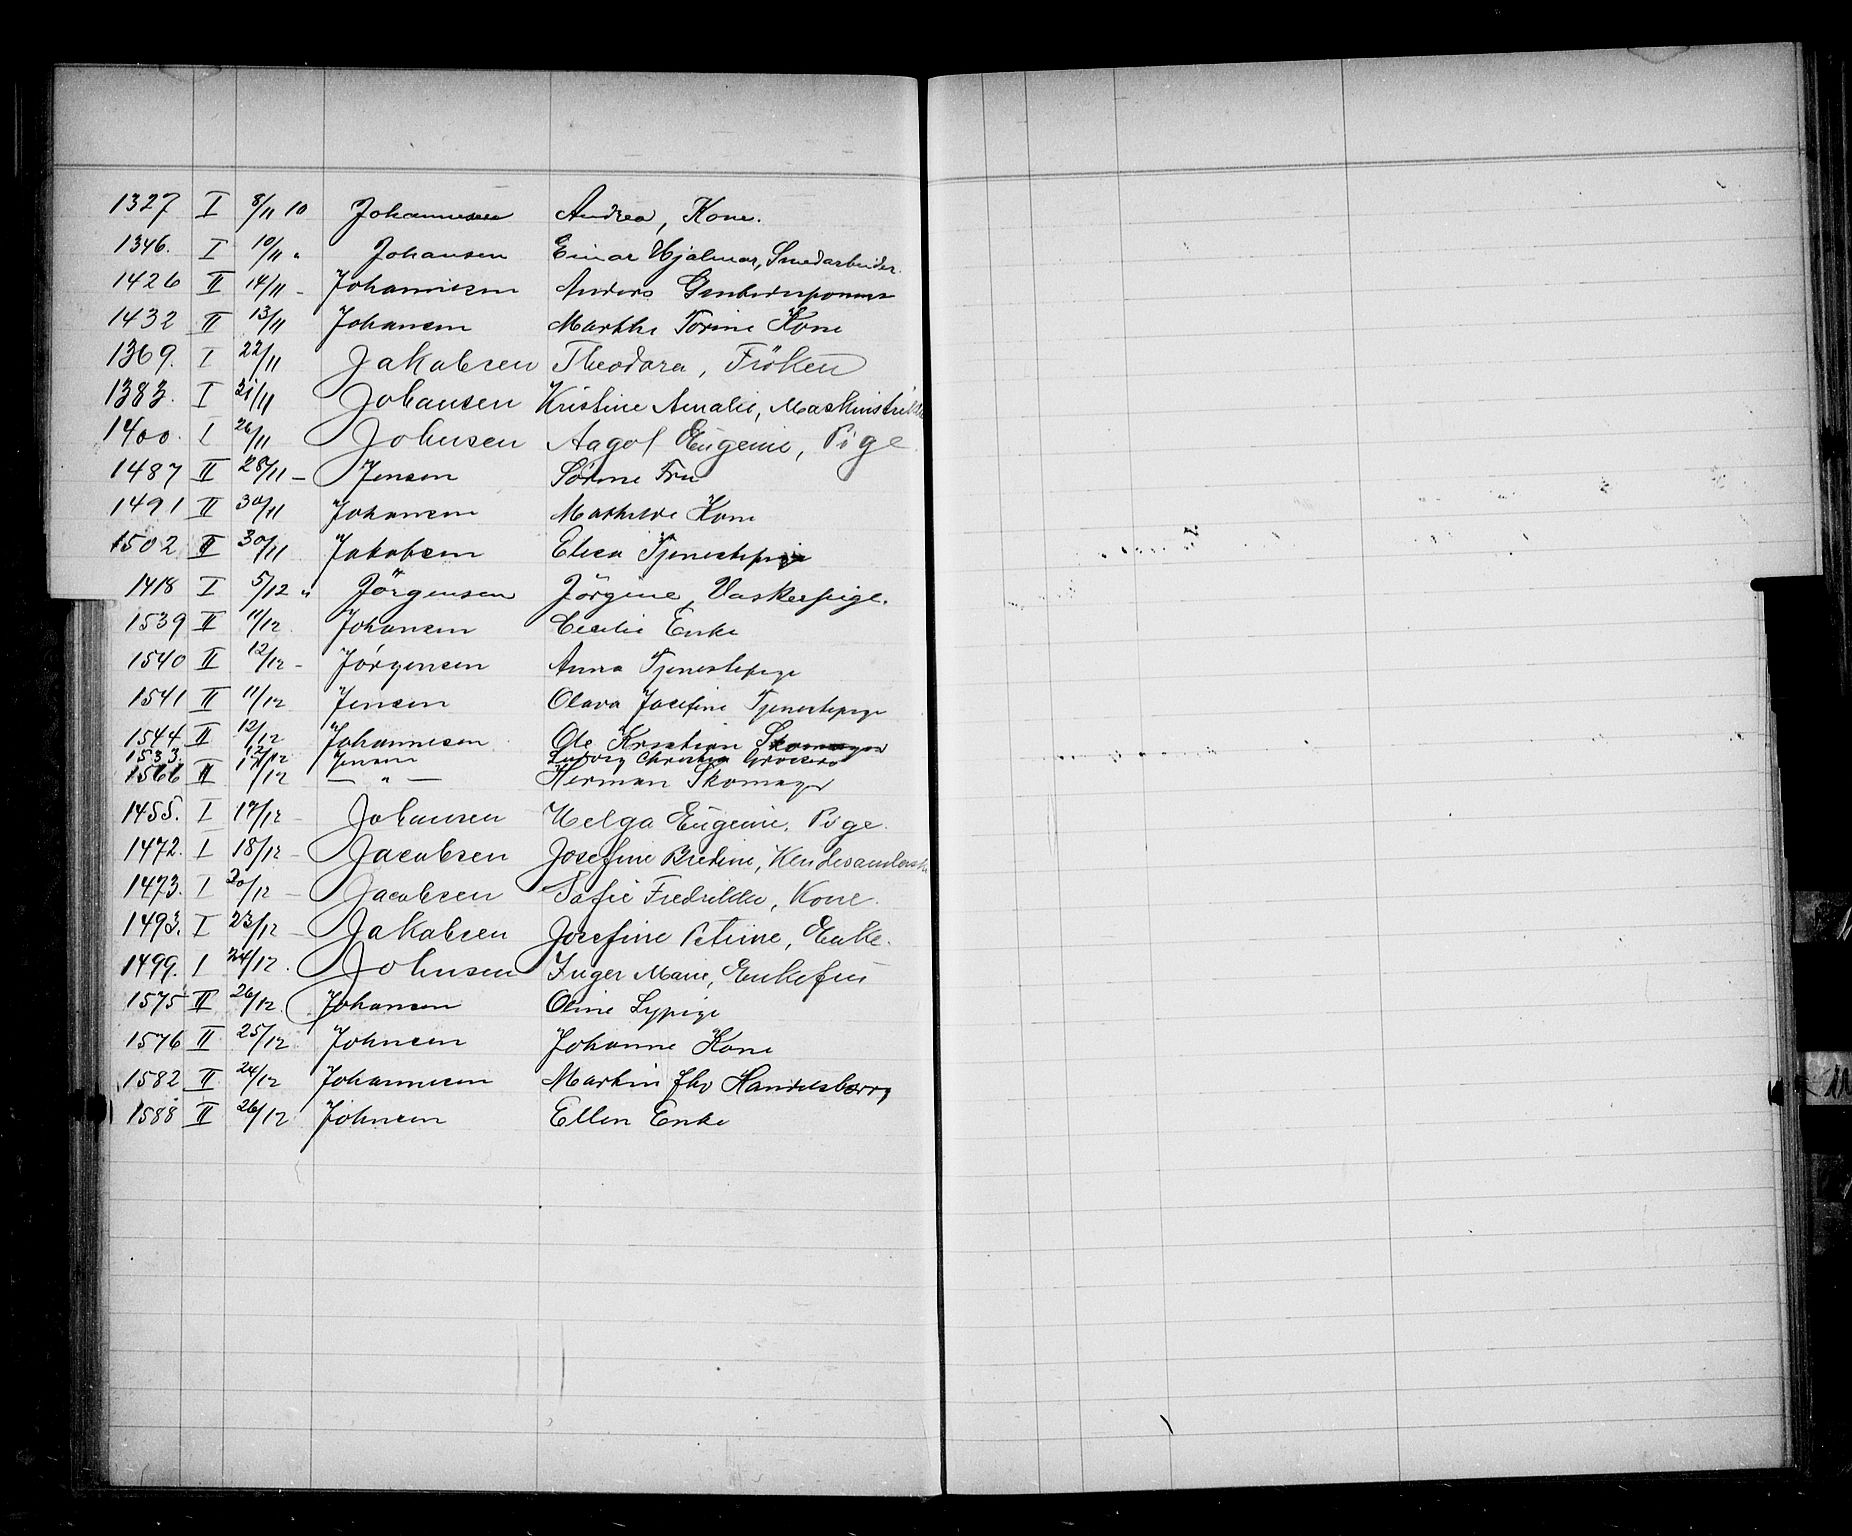 1327 I 8/11 10 Johannesen Andrea, Kone.
1346. I 10/11 " Johansen Einar Hjalmar, Smedarbeider.
1426 II 14/11 - Johannesen Anders
1432 II 13/11 Johansen Marthe Torine Kone
1369. I 22/11 Jakobsen Theodora, Fröken
1383. I 21/11 Johansen Kristine Amalie,
1400. I 26/11 Johnsen Aagot Eugenie, Pige
1487 II 28/11 - Jensen Sörine Fru
1491 II 30/11 Johansen Mathilde Kone
1502 II 30/11 Jakobsen Elisa Tjenestepige
1418 I 5/12 " Jörgensen Jörgine, Vaskerpige.
1539 II 11/12 Johansen Cecilie Enke
1540 II 12/12 - Jörgensen Anna Tjenestepige
1541 II 11/12 Jensen Olava Josefine Tjenestepige
1544 II 12/12 Johannesen Ole Kristian Skomager
1533. 12/12 Jensen Ludvig Christian
1566 II 17/12 — " — Herman Skomager
1455. I 17/12 - Johansen Helga Eugenie, Pige.
1472. I 18/12 - Jacobsen Josefine Bredine,
1473. I 20/12 - Jacobsen Sofie Fredrikke, Kone.
1493. I 23/12 - Jakobsen Josefine Petrine, Enke.
1499. I 24/12. Johnsen Inger Marie, Enkefru
1575 II 26/12. Johansen Oline Sypige
1576 II 25/12 Johnsen Johanne Kone
1582 II 24/12 Johannesen Martin fhv Handelsborg
1588 II 26/12 Johnsen Ellen Enke